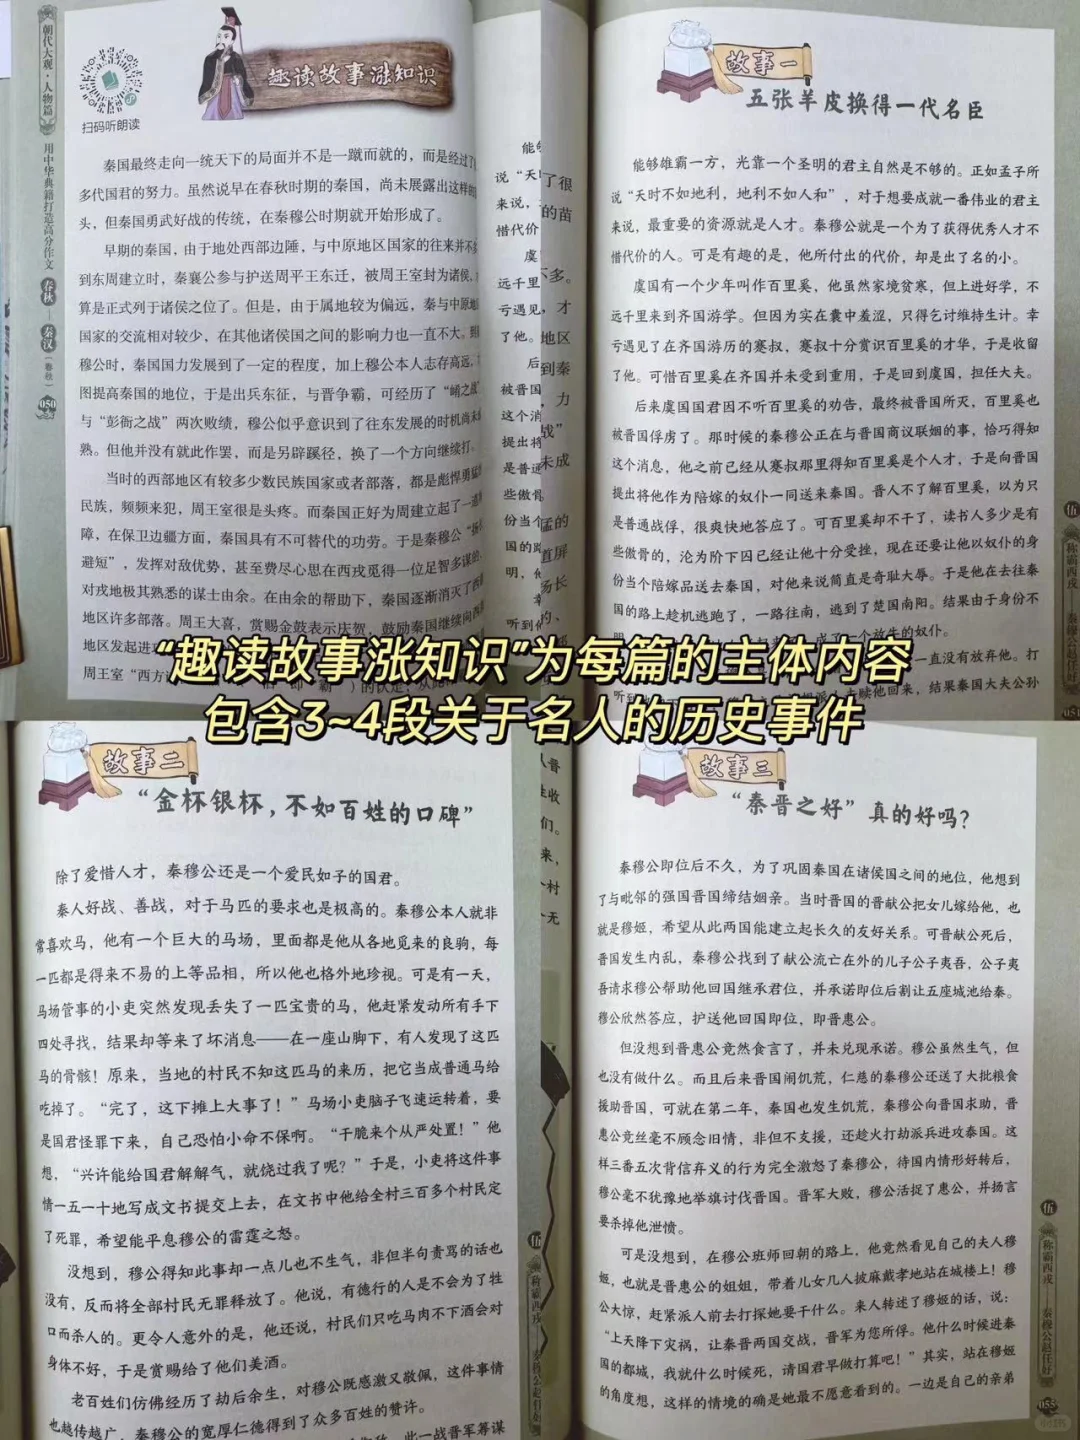 朝代大观·人物篇
用中华典籍打造高分作文
春秋—秦汉
（春秋）
050
扫码听朗读
趣读故事涨知识
秦国最终走向一统天下的局面并不是一蹴而就的，而是经过了
多代国君的努力。虽然说早在春秋时期的秦国，尚未展露出这样的
头，但秦国勇武好战的传统，在秦穆公时期就开始形成了。
早期的秦国，由于地处西部边陲，与中原地区国家的往来并不
到东周建立时，秦襄公参与护送周平王东迁，被周王室封为诸侯，
算是正式列于诸侯之位了。但是，由于属地较为偏远，秦与中原地
国家的交流相对较少，在其他诸侯国之间的影响力也一直不大。到
穆公时，秦国国力发展到了一定的程度，加上穆公本人志存高远，
图提高秦国的地位，于是出兵东征，与晋争霸，可经历了“崤之战”
与“彭衙之战”两次败绩，穆公似乎意识到了往东发展的时机尚未
熟。但他并没有就此作罢，而是另辟蹊径，换了一个方向继续打。
当时的西部地区有较多少数民族国家或者部落，都是彪悍勇猛
民族，频频来犯，周王室很是头疼。而秦国正好为周建立起了一道
障，在保卫边疆方面，秦国具有不可替代的功劳。于是秦穆公“扬
避短”，发挥对敌优势，甚至费尽心思在西戎觅得一位足智多谋的、
对戎地极其熟悉的谋士由余。在由余的帮助下，秦国逐渐消灭了西
地区许多部落。周王大喜，赏赐金鼓表示庆贺，鼓励秦国继续向西
地区发起进
周王室“西方
故事一
五张羊皮换得一代名臣
能够雄霸一方，光靠一个圣明的君主自然是不够的。正如孟子所
说“天时不如地利，地利不如人和”，对于想要成就一番伟业的君主
来说，最重要的资源就是人才。秦穆公就是一个为了获得优秀人才不
惜代价的人。可是有趣的是，他所付出的代价，却是出了名的小。
虞国有一个少年叫作百里奚，他虽然家境贫寒，但上进好学，不
远千里来到齐国游学。但因为实在囊中羞涩，只得乞讨维持生计。幸
亏遇见了在齐国游历的蹇叔，蹇叔十分赏识百里奚的才华，于是收留
了他。可惜百里奚在齐国并未受到重用，于是回到虞国，担任大夫。
后来虞国国君因不听百里奚的劝告，最终被晋国所灭，百里奚也
被晋国俘虏了。那时候的秦穆公正在与晋国商议联姻的事，恰巧得知
这个消息，他之前已经从蹇叔那里得知百里奚是个人才，于是向晋国
提出将他作为陪嫁的奴仆一同送来秦国。晋人不了解百里奚，以为只
是普通战俘，很爽快地答应了。可百里奚却不干了，读书人多少是有
些傲骨的，沦为阶下囚已经让他十分受挫，现在还要让他以奴仆的身
份当个陪嫁品送去秦国，对他来说简直是奇耻大辱。于是他在去往秦
国的路上趁机逃跑了，一路往南，逃到了楚国南阳。结果由于身份不
一直没有放弃他。打
赎他回来，结果秦国大夫公孙
伍
称霸西戎——秦穆公赵任好
051
“趣读故事涨知识”为每篇的主体内容
包含3~4段关于名人的历史事件
故事二
“金杯银杯，不如百姓的口碑”
除了爱惜人才，秦穆公还是一个爱民如子的国君。
秦人好战、善战，对于马匹的要求也是极高的。秦穆公本人就非
常喜欢马，他有一个巨大的马场，里面都是他从各地觅来的良驹，每
一匹都是得来不易的上等品相，所以他也格外地珍视。可是有一天，
马场管事的小吏突然发现丢失了一匹宝贵的马，他赶紧发动所有手下
四处寻找，结果却等来了坏消息——在一座山脚下，有人发现了这匹
马的骨骸！原来，当地的村民不知这匹马的来历，把它当成普通马给
吃掉了。“完了，这下摊上大事了！”马场小吏脑子飞速运转着，要
是国君怪罪下来，自己恐怕小命不保啊。“干脆来个从严处置！”他
想，“兴许能给国君解解气，就饶过我了呢？”于是，小吏将这件事
情一五一十地写成文书提交上去，在文书中他给全村三百多个村民定
了死罪，希望能平息穆公的雷霆之怒。
没想到，穆公得知此事却一点儿也不生气，非但半句责骂的话也
没有，反而将全部村民无罪释放了。他说，有德行的人是不会为了牲
口而杀人的。更令人意外的是，他还说，村民们只吃马肉不下酒会对
身体不好，于是赏赐给了他们美酒。
老百姓们仿佛经历了劫后余生，对穆公既感激又敬佩，这件事情
也越传越广，秦穆公的宽厚仁德得到了众多百姓的赞许。
此一战晋军筹谋
伍
称霸西戎——秦穆公赵任好
故事三
“秦晋之好”真的好吗？
秦穆公即位后不久，为了巩固秦国在诸侯国之间的地位，他想到
了与毗邻的强国晋国缔结姻亲。当时晋国的晋献公把女儿嫁给他，也
就是穆姬，希望从此两国能建立起长久的友好关系。可晋献公死后，
晋国发生内乱，秦穆公找到了献公流亡在外的儿子公子夷吾，公子夷
吾请求穆公帮助他回国继承君位，并承诺即位后割让五座城池给秦。
穆公欣然答应，护送他回国即位，即晋惠公。
但没想到晋惠公竟然食言了，并未兑现承诺。穆公虽然生气，但
也没有做什么。而且后来晋国闹饥荒，仁慈的秦穆公还送了大批粮食
援助晋国，可就在第二年，秦国也发生饥荒，秦穆公向晋国求助，晋
惠公竟丝毫不顾念旧情，非但不支援，还趁火打劫派兵进攻秦国。这
样三番五次背信弃义的行为完全激怒了秦穆公，待国内情形好转后，
穆公毫不犹豫地举旗讨伐晋国。晋军大败，穆公活捉了惠公，并扬言
要杀掉他泄愤。
可是没想到，在穆公班师回朝的路上，他竟然看见自己的夫人穆
姬，也就是晋惠公的姐姐，带着儿女几人披麻戴孝地站在城楼上！穆
公大惊，赶紧派人前去打探她要干什么。来人转述了穆姬的话，说：
“上天降下灾祸，让秦晋两国交战，晋军为您所俘。他什么时候进秦
国的都城，我就什么时候死，请国君早做打算吧！”其实，站在穆姬
的角度想，这样的情境的确是她最不愿意看到的。一边是自己的亲弟
伍
称霸西戎——秦穆公赵任好
055